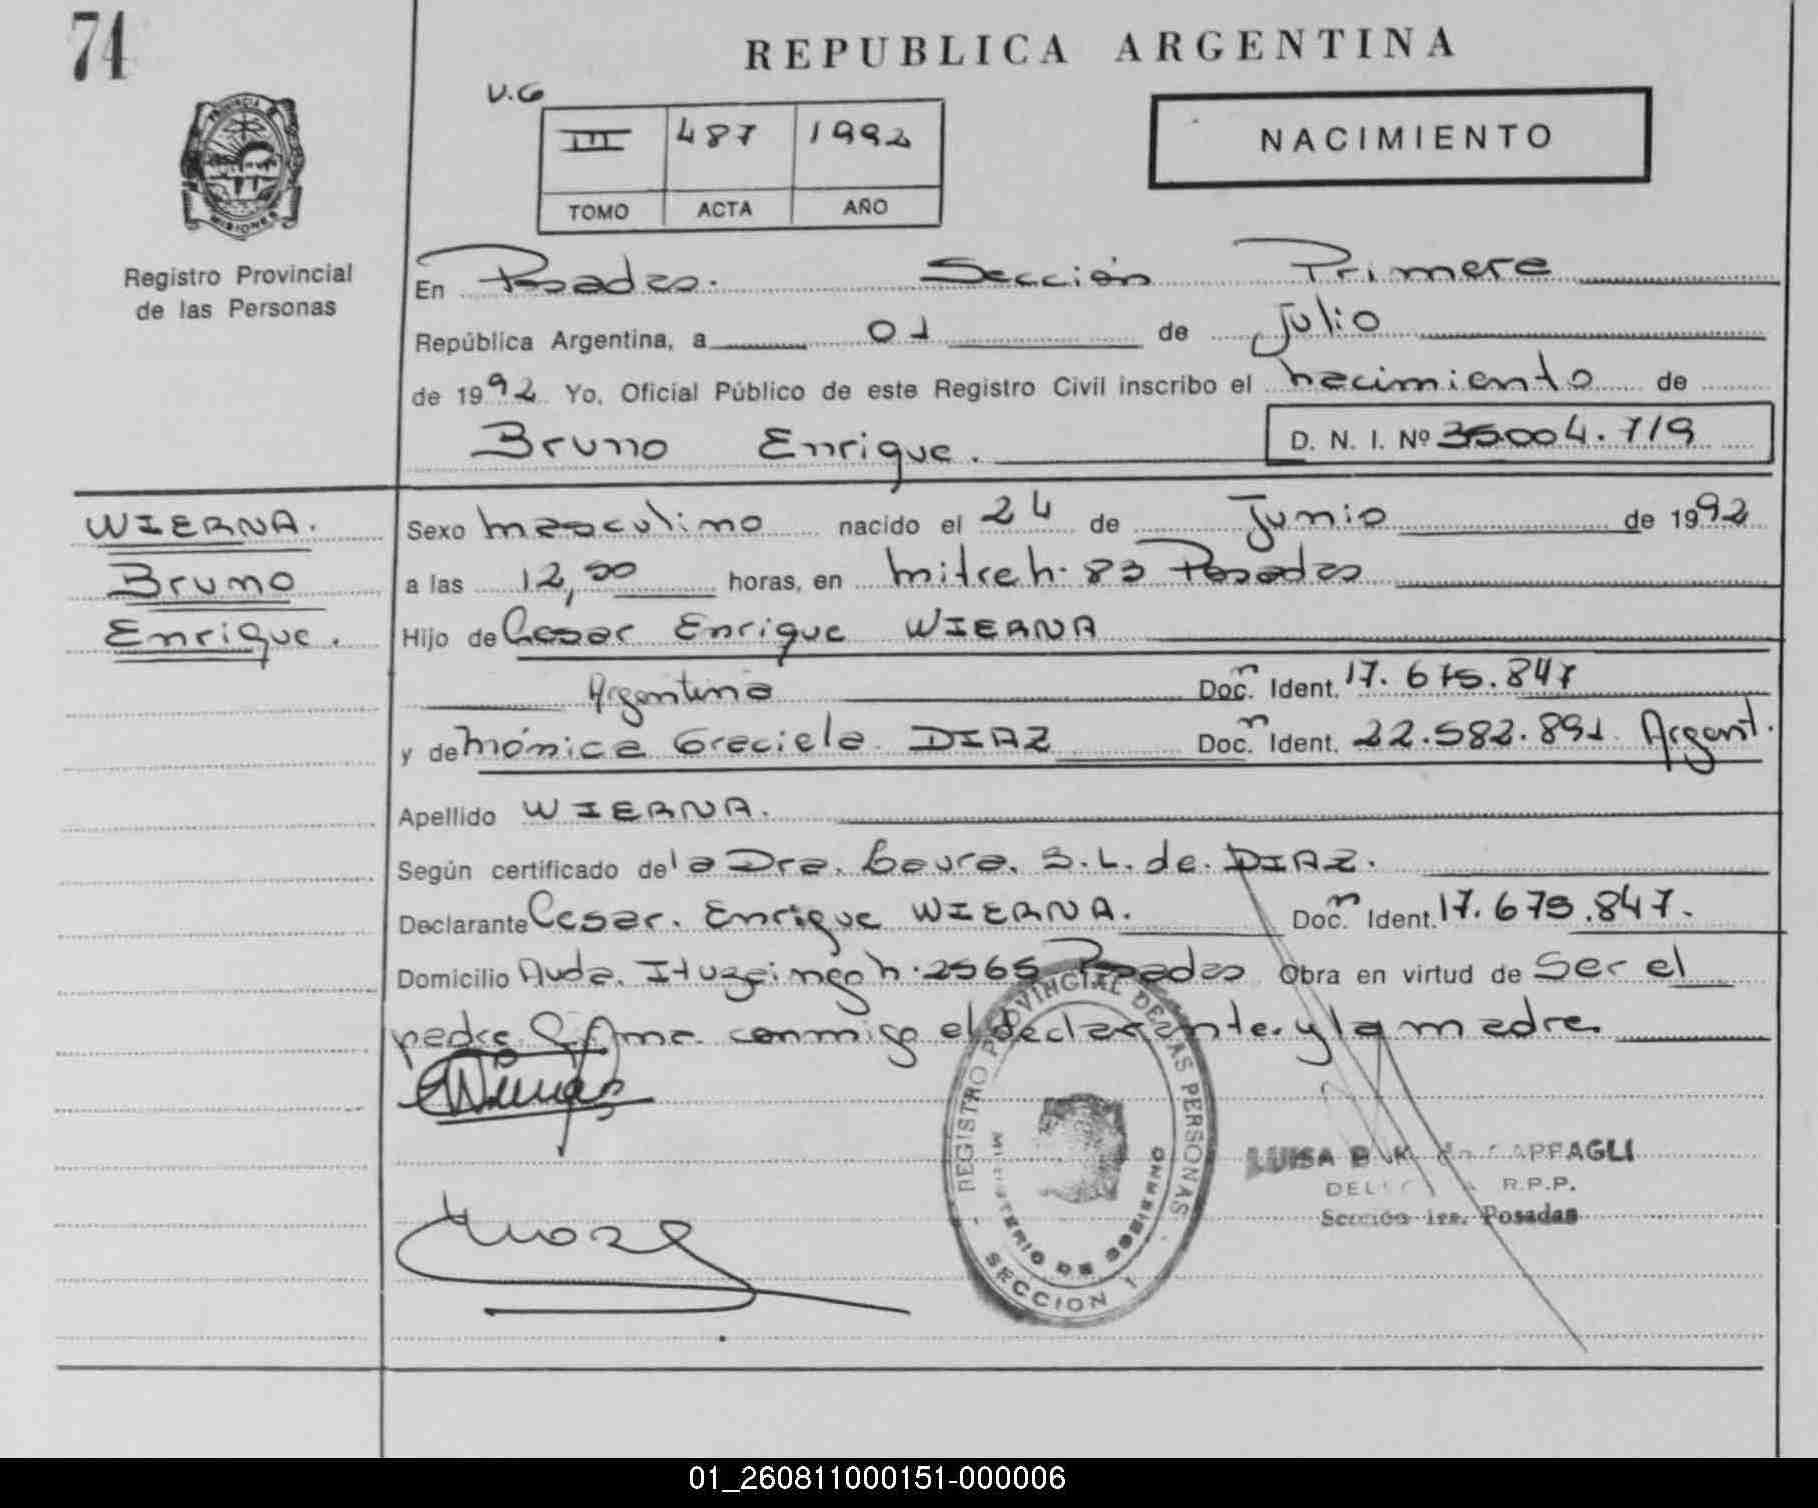 74
REPUBLICA ARGENTINA
V.G
III 487 1992
TOMO ACTA AÑO
NACIMIENTO
PROVINCIA DE MISIONES
Registro Provincial
de las Personas
En Posadas. Sección Primera
República Argentina, a 01 de Julio
de 1992 Yo, Oficial Público de este Registro Civil inscribo el nacimiento de
Bruno Enrique. D. N. I. Nº 36.004.719
WIERNA.
Bruno
Enrique.
Sexo masculino nacido el 24 de Junio de 1992
a las 12,50 horas, en Mitre h. 83 Posadas
Hijo de Cesar Enrique WIERNA
Argentino Doc. Ident. 17.675.847
y de Mónica Graciela DIAZ Doc. Ident. 22.582.891 Argent.
Apellido WIERNA.
Según certificado de la Dra. Laura. S.L. de. DIAZ.
Declarante Cesar. Enrique WIERNA. Doc. Ident. 17.675.847.
Domicilio Avda. Ituzaingo h. 2565 Posadas Obra en virtud de ser el
padre. Firma conmigo el declarante. y la madre.
REGISTRO PROVINCIAL DE LAS PERSONAS
MINISTERIO DE GOBIERNO
SECCION 1
LUISA
R.P.P.
Sección 1ra. Posadas
01_260811000151-000006